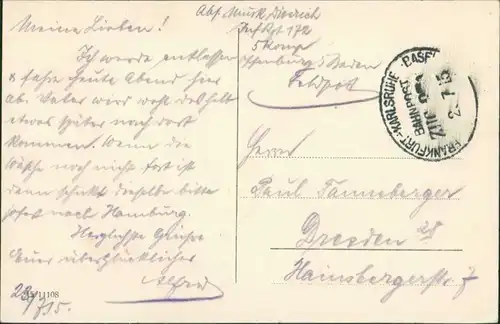 Meine Lieben!
Ich werde entlassen
& fahre heute Abend hier
ab. Vater wird wohl deshalb
etwas später nach dort
kommen. Wenn die
Wäsche noch nicht fort ist
dann schickt dieselbe bitte
sofort nach Hamburg.
Herzlichste Grüsse
Euer überglücklicher
Alfred
23/7 15.
11108
Abs. Musk. Diedrich
Inf Rgt 172
5 Komp
Offenburg i/Baden
Feldpost
FRANKFURT-KARLSRUHE-BASEL
BAHNPOST
ZUG
Herrn
Paul Tanneberger
Dresden 28
Hainsbergerstr 7